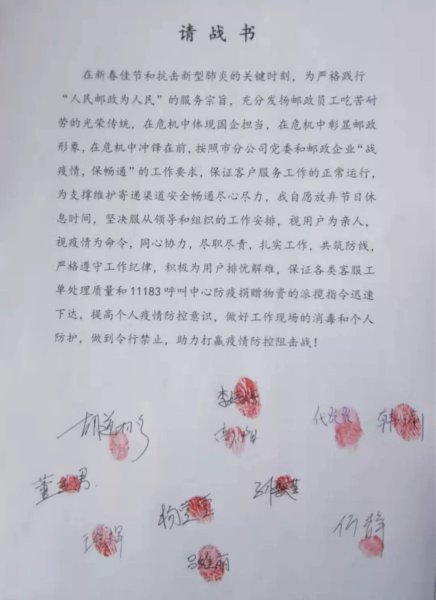 请战书
在新春佳节和抗击新型肺炎的关键时刻，为严格践行
“人民邮政为人民”的服务宗旨，充分发扬邮政员工吃苦耐
劳的光荣传统，在危机中体现国企担当，在危机中彰显邮政
形象，在危机中冲锋在前，按照市分公司党委和邮政企业“战
疫情，保畅通”的工作要求，保证客户服务工作的正常运行，
为支撑维护寄递渠道安全畅通尽心尽力，我自愿放弃节日休
息时间，坚决服从领导和组织的工作安排，视用户为亲人，
视疫情为命令，同心协力，尽职尽责，扎实工作，共筑防线，
严格遵守工作纪律，积极为用户排忧解难，保证各类客服工
单处理质量和11183呼叫中心防疫捐赠物资的派揽指令迅速
下达，提高个人疫情防控意识，做好工作现场的消毒和个人
防护，做到令行禁止，助力打赢疫情防控阻击战！
何静